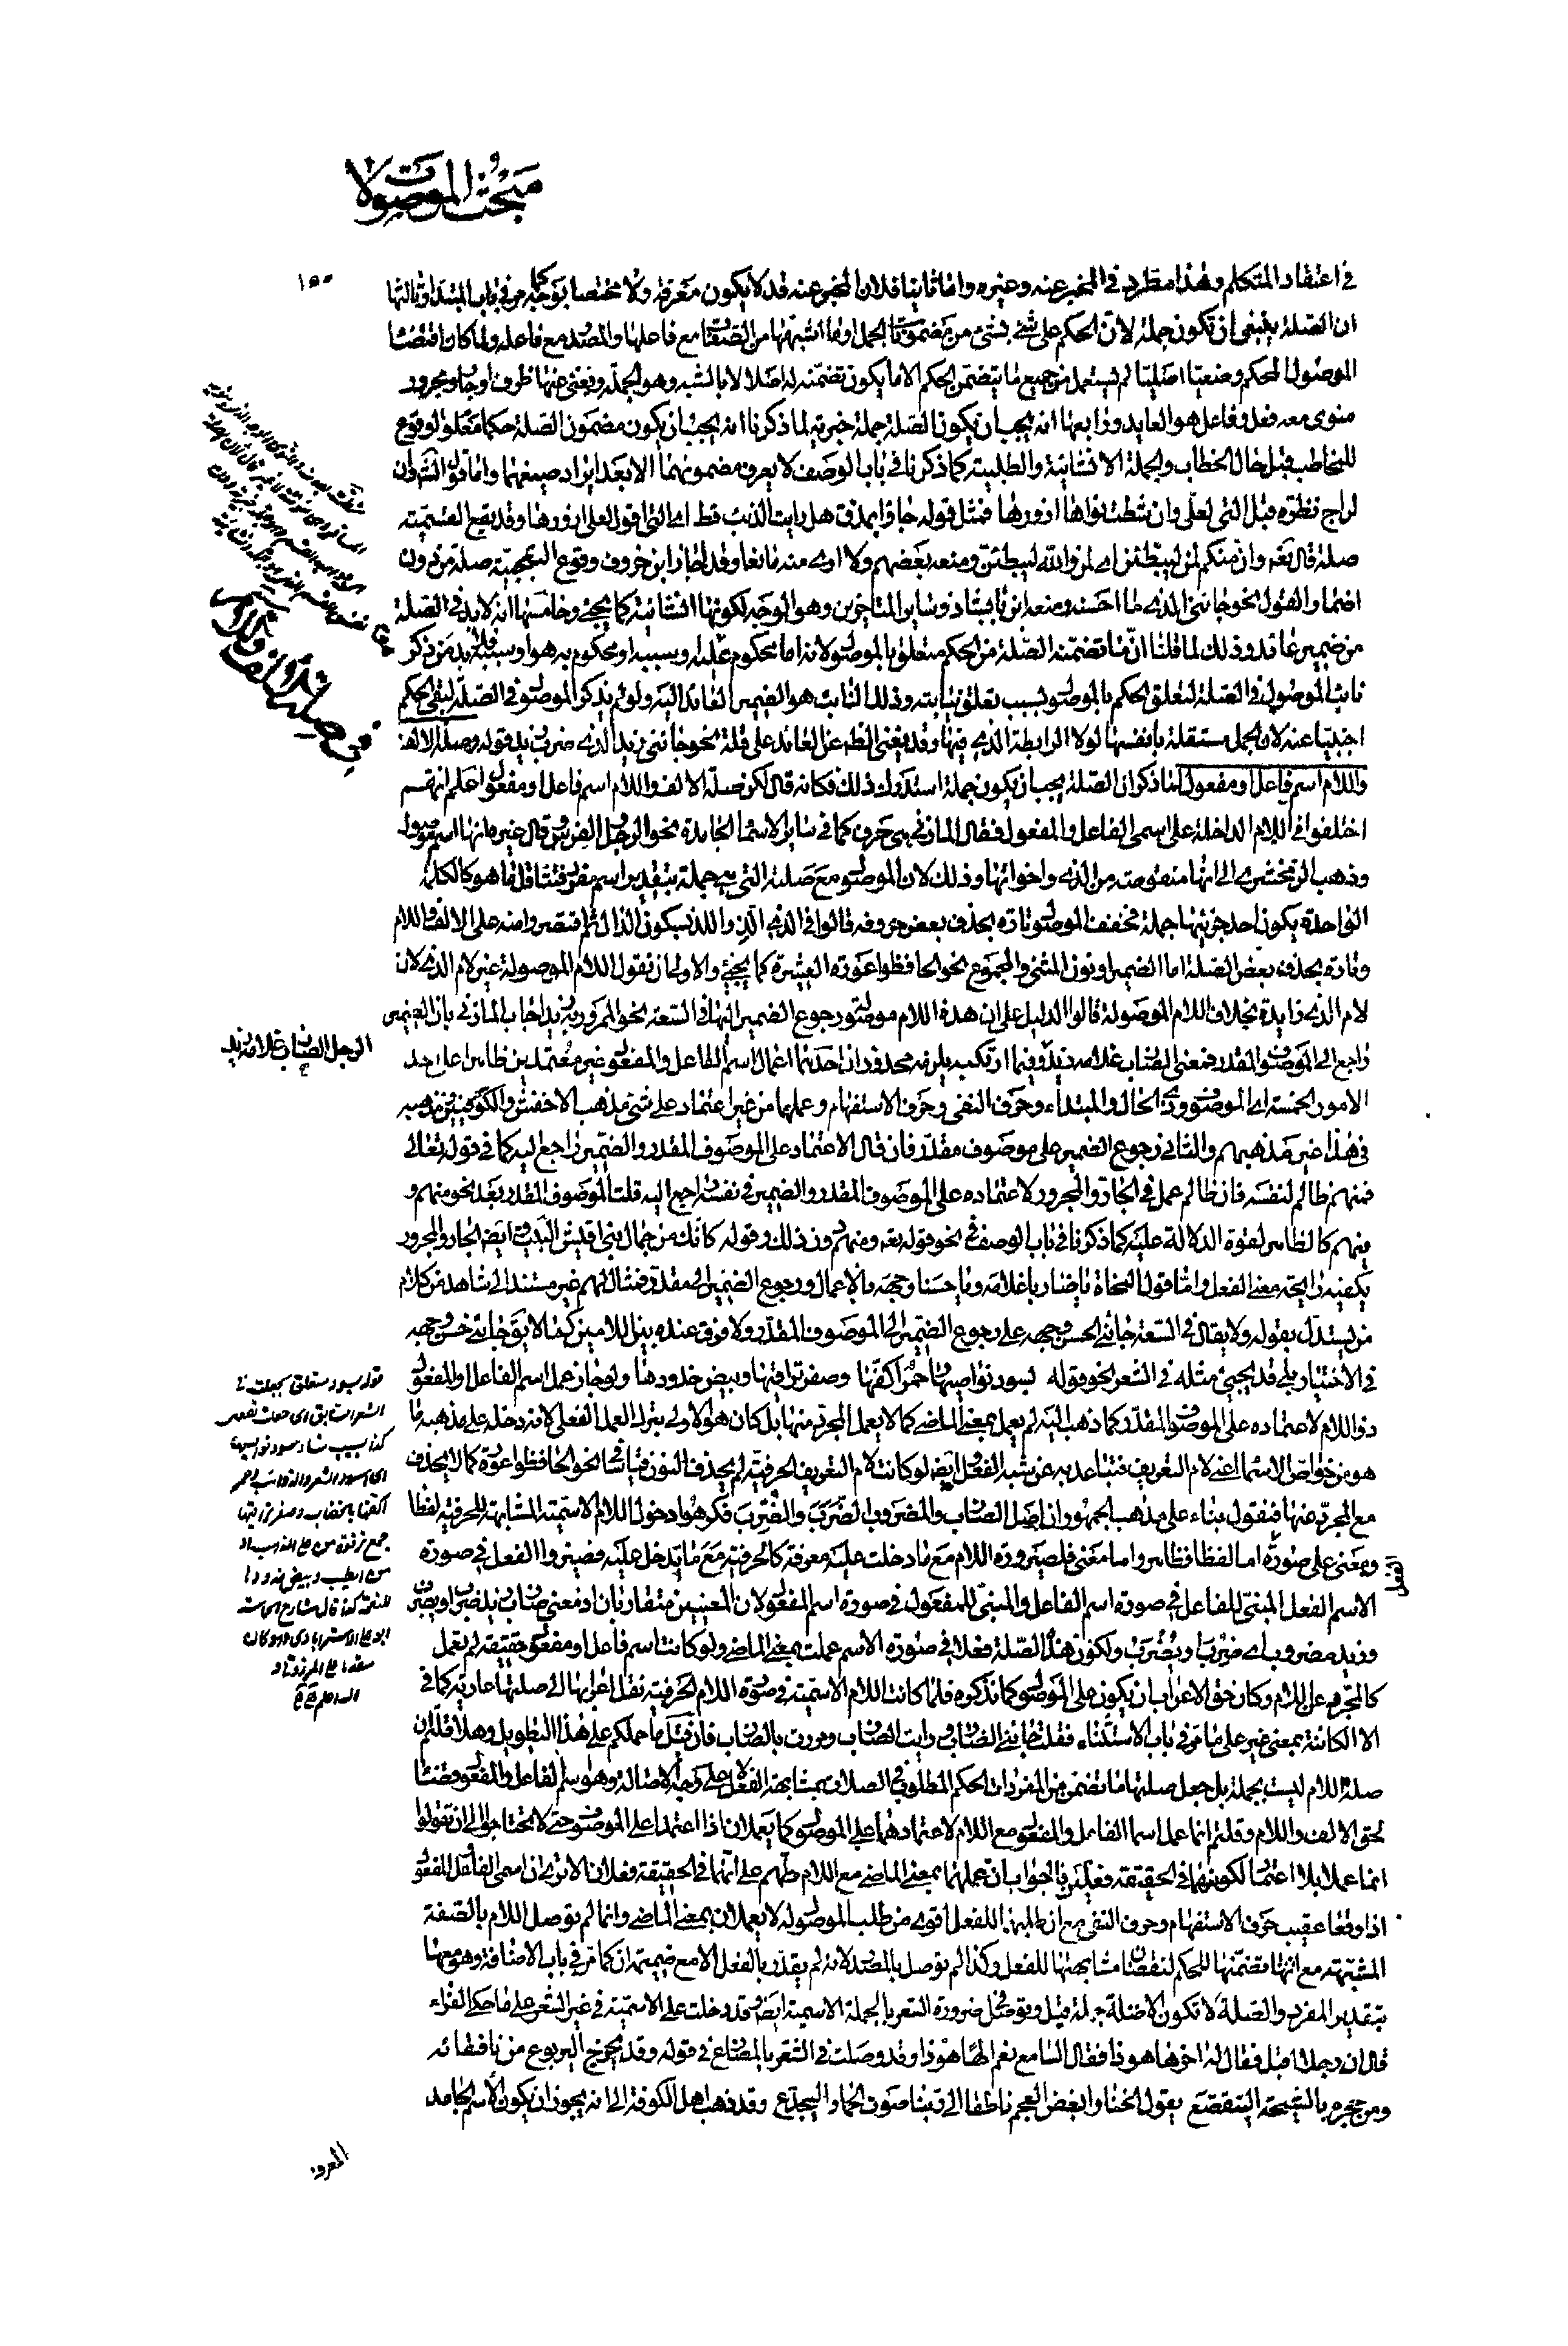 مبحث الموصولات
١٥٥
في اعتقاد المتكلم وهذا مطرد في المخبر عنه وغيره واما ثانيا فلان المخبر عنه قد لا يكون معرفة ولا مختصا بوجه كما مر في باب المبتدا وثالثها
ان الصلة ينبغي ان تكون جملة لان الحكم على شئ بشئ من مضمونات الجمل او ما اشبهها من الصفات مع فاعلها والمصدر مع فاعله ولما كان اقتضاء
الموصول للحكم وضعيا اصليا لم يستعمل من جميع ما يتضمن الحكم الا ما يكون تضمنه له اصلا لا بالشبه وهو الجملة ويغني عنها ظرف او جار ومجرور
منوي معه فعل وفاعل هو العايد ورابعها انه يجب ان يكون الصلة جملة خبرية لما ذكرنا انه يجب ان يكون مضمون الصلة حكما معلوم الوقوع
للمخاطب قبل حال الخطاب والجملة الانشائية والطلبية كما ذكرنا في باب الوصف لا يعرف مضمونهما الا بعد ايراد صيغهما واما قول الشاعر وان
لراج نظرة قبل التي لعلي وان شطت نواها ازورها فمثل قوله جاؤا بمذق هل رايت الذئب قط اي التي اقول لعلي ازورها وقد يقع القسمية
صلة قال تعه وان منكم لمن ليبطئن اي لمن والله ليبطئن ومنعه بعضهم ولا ارى منه مانعا وقد اجاز ابن خروف وقوع التعجبية صلة من دون
اضمار القول نحو جائني الذي ما احسنه ومنعه ابن بابشاذ وساير المتاخرين وهو الوجه لكونها انشائية كما يجئ وخامسها انه لابد في الصلة
من ضمير عائد وذلك لما قلنا ان ما تضمنه الصلة من الحكم متعلق بالموصول لانه اما محكوم عليه هو او سببه او محكوم به هو او سببه فلابد من ذكر
نائب الموصول في الصلة لتعلق الحكم بالموصول بسبب تعلقه بنائبه وذلك النائب هو الضمير العائد اليه ولو لم يذكر الموصول في الصلة لبقي الحكم
اجنبيا عنه لان الجمل مستقلة بانفسها لولا الرابطة الذي فيها وقد يغني الظاهر عن العائد على قلة نحو جائني زيد الذي ضرب زيد قوله وصلة الالف
واللام اسم فاعل او مفعول لما ذكر ان الصلة يجب ان يكون جملة استدرك ذلك فكانه قال لكن صلة الالف واللام اسم فاعل او مفعول اعلم انهم
اختلفوا في اللام الداخلة على اسمي الفاعل والمفعول فقال المازني هي حرف كما في ساير الاسماء الجامدة نحو الرجل والفرس وقال غيره انها اسم موصول
وذهب الزمخشري الى انها منقوصة من الذي واخواتها وذلك لان الموصول مع صلته التي هي جملة بتقدير اسم مفرد فتثاقل ما هو كالكلمة
الواحدة بكون احد جزئيها جملة فخفف الموصول تارة بحذف بعض حروفه قالوا في الذي اللذ واللذ بسكون الذال ثم اقتصروا منه على الالف واللام
وتارة بحذف بعض الصلة اما الضمير او نون المثنى والمجموع نحو الحافظوا عورة العشيرة كما يجئ والاولى ان نقول اللام الموصولة غير لام الذي لان
لام الذي زايدة بخلاف اللام الموصولة قالوا الدليل على ان هذه اللام موصول رجوع الضمير اليها في السعة نحو الممرور به زيد اجاب المازني بان الضمير
راجع الى الموصوف المقدر فمعنى الضارب غلامه زيد وفيما ارتكبه يلزمه محذوران احدهما اعمال اسم الفاعل والمفعول غير معتمدين ظاهرا على احد
الامور الخمسة اي الموصوف وذي الحال والمبتداء وحرف النفي وحرف الاستفهام وعملهما من غير اعتماد على شئ مذهب الاخفش والكوفيين ومذهبه
في هذا غير مذهبهم والثاني رجوع الضمير على موصوف مقدر فان قال الاعتماد على الموصوف المقدر والضمير راجع اليه كما في قوله تعالى
فمنهم ظالم لنفسه فان ظالم عمل في الجار والمجرور لاعتماده على الموصوف المقدر والضمير في نفسه راجع اليه قلت الموصوف المقدر بعد نحو منهم و
فيهم كالظاهر لقوة الدلالة عليه كما ذكرنا في باب الوصف في نحو قوله تعه ومنهم دون ذلك وقوله كانك من جمال بني اقيش البيت ايضا الجار والمجرور
يكفيه رايحة معنى الفعل واما قول النحاة يا ضاربا غلامه ويا حسنا وجهه بالاعمال ورجوع الضمير الى مقدر فمثال لهم غير مستند الى شاهد من كلام
من يستدل بقوله ولا يقال في السعة جائني الحسن وجهه على رجوع الضمير الى الموصوف المقدر ولا فرق عنده بين اللامين كما لا يقال جائني حسن وجهه
في الاختيار بلى قد يجيئ مثله في الشعر نحو قوله لسود نواصيها وحمر اكفها وصفر تراقيها وبيض خدودها ولو جاز عمل اسم الفاعل والمفعول
ذو اللام لاعتماده على الموصوف المقدر كما ذهب اليه لم يعمل بمعنى الماضي كما لا يعمل المجرد منها بل كان هو الاولى بترك العمل الفعلي لانه دخله على مذهبه ما
هو من خواص الاسماء اعني لام التعريف فتباعد به عن شبه الفعل ايضا لو كانت لام التعريف الحرفية لم يحذف النون قياسا في نحو الحافظوا عورة كما لا يحذف
مع المجرد عنها فنقول بناء على مذهب الجمهور ان اصل الضارب والمضروب الضَرَبَ والضُرِبَ فكرهوا دخول اللام الاسمية المشابهة للحرفية لفظا
ومعنى على صورة الفعل اما لفظا فظاهر واما معنى فلصيرورة اللام مع ما دخلت عليه معرفة كالحرفية مع ما يدخل عليه فصيروا الفعل في صورة
الاسم الفعل المبني للفاعل في صورة اسم الفاعل والمبني للمفعول في صورة اسم المفعول لان المعنيين متقاربان اذ معنى زيد ضارب زيد ضرب او يضرب
وزيد مضروب اي ضُرِبَ او يُضرَبُ ولكون هذه الصلة فعلا في صورة الاسم عملت بمعنى الماضي ولو كانت اسم فاعل او مفعول حقيقة لم تعمل
كالمجرد عن اللام وكان حق الاعراب ان يكون على الموصول كما نذكره فلما كانت اللام الاسمية في صورة اللام الحرفية نقل اعرابها الى صلتها عارية كما في
الا الكائنة بمعنى غير على ما مر في باب الاستثناء فقلت جائني الضارب ورايت الضارب ومررت بالضارب فان قيل ما حملكم على هذا التطويل وهلا قلتم ان
صلة اللام ليست بجملة بل جعل صلتها ما تضمن من المفردات الحكم المطلوب في الصلات بمشابهة الفعل لا على وجه الاصالة وهو اسم الفاعل والمفعول قضاء
لحق الالف واللام وقلتم انما عمل اسما الفاعل والمفعول مع اللام لاعتمادهما على الموصول كما يعملان اذا اعتمدا على الموصوف حتى لا تحتاجوا الى ان تقولوا
انما عملا بلا اعتماد لكونهما في الحقيقة فعلين فالجواب ان عملهما بمعنى الماضي مع اللام دلهم على انهما في الحقيقة فعلان الا ترى ان اسمي الفاعل والمفعول
اذا وقعا عقيب حرف الاستفهام وحرف النفي مع ان طلبهما للفعل اقوى من طلب الموصول له لا يعملان بمعنى الماضي وانما لم توصل اللام بالصفة
المشبهة مع تضمنها للحكم لنقصان مشابهتها للفعل وكذا لم توصل بالمصدر لانه لم يقدر بالفعل الا مع ضميمة ان كما مر في باب الاضافة وهو معها
بتقدير المفرد والصلة لا تكون الا جملة قيل وتوصل في ضرورة الشعر بالجملة الاسمية ايضا وقد دخلت على الاسمية في غير الشعر على ما حكى الفراء
قال ان رجلا اقبل فقال له اخر ها هو ذا فقال السامع نعم الها هو ذا وقد وصلت في الشعر بالمضارع في قوله وقد يخرج اليربوع من نافقائه
ومن جحره بالشيحة اليتقصع يقول الخنا وابغض العجم ناطقا الى ربنا صوت الحمار اليجدع وقد ذهب اهل الكوفة الى انه يجوز ان يكون الاسم الجامد
المعرف
في صلة الالف واللام
الرجل الضارب غلامه زيد
قوله بسود متعلق